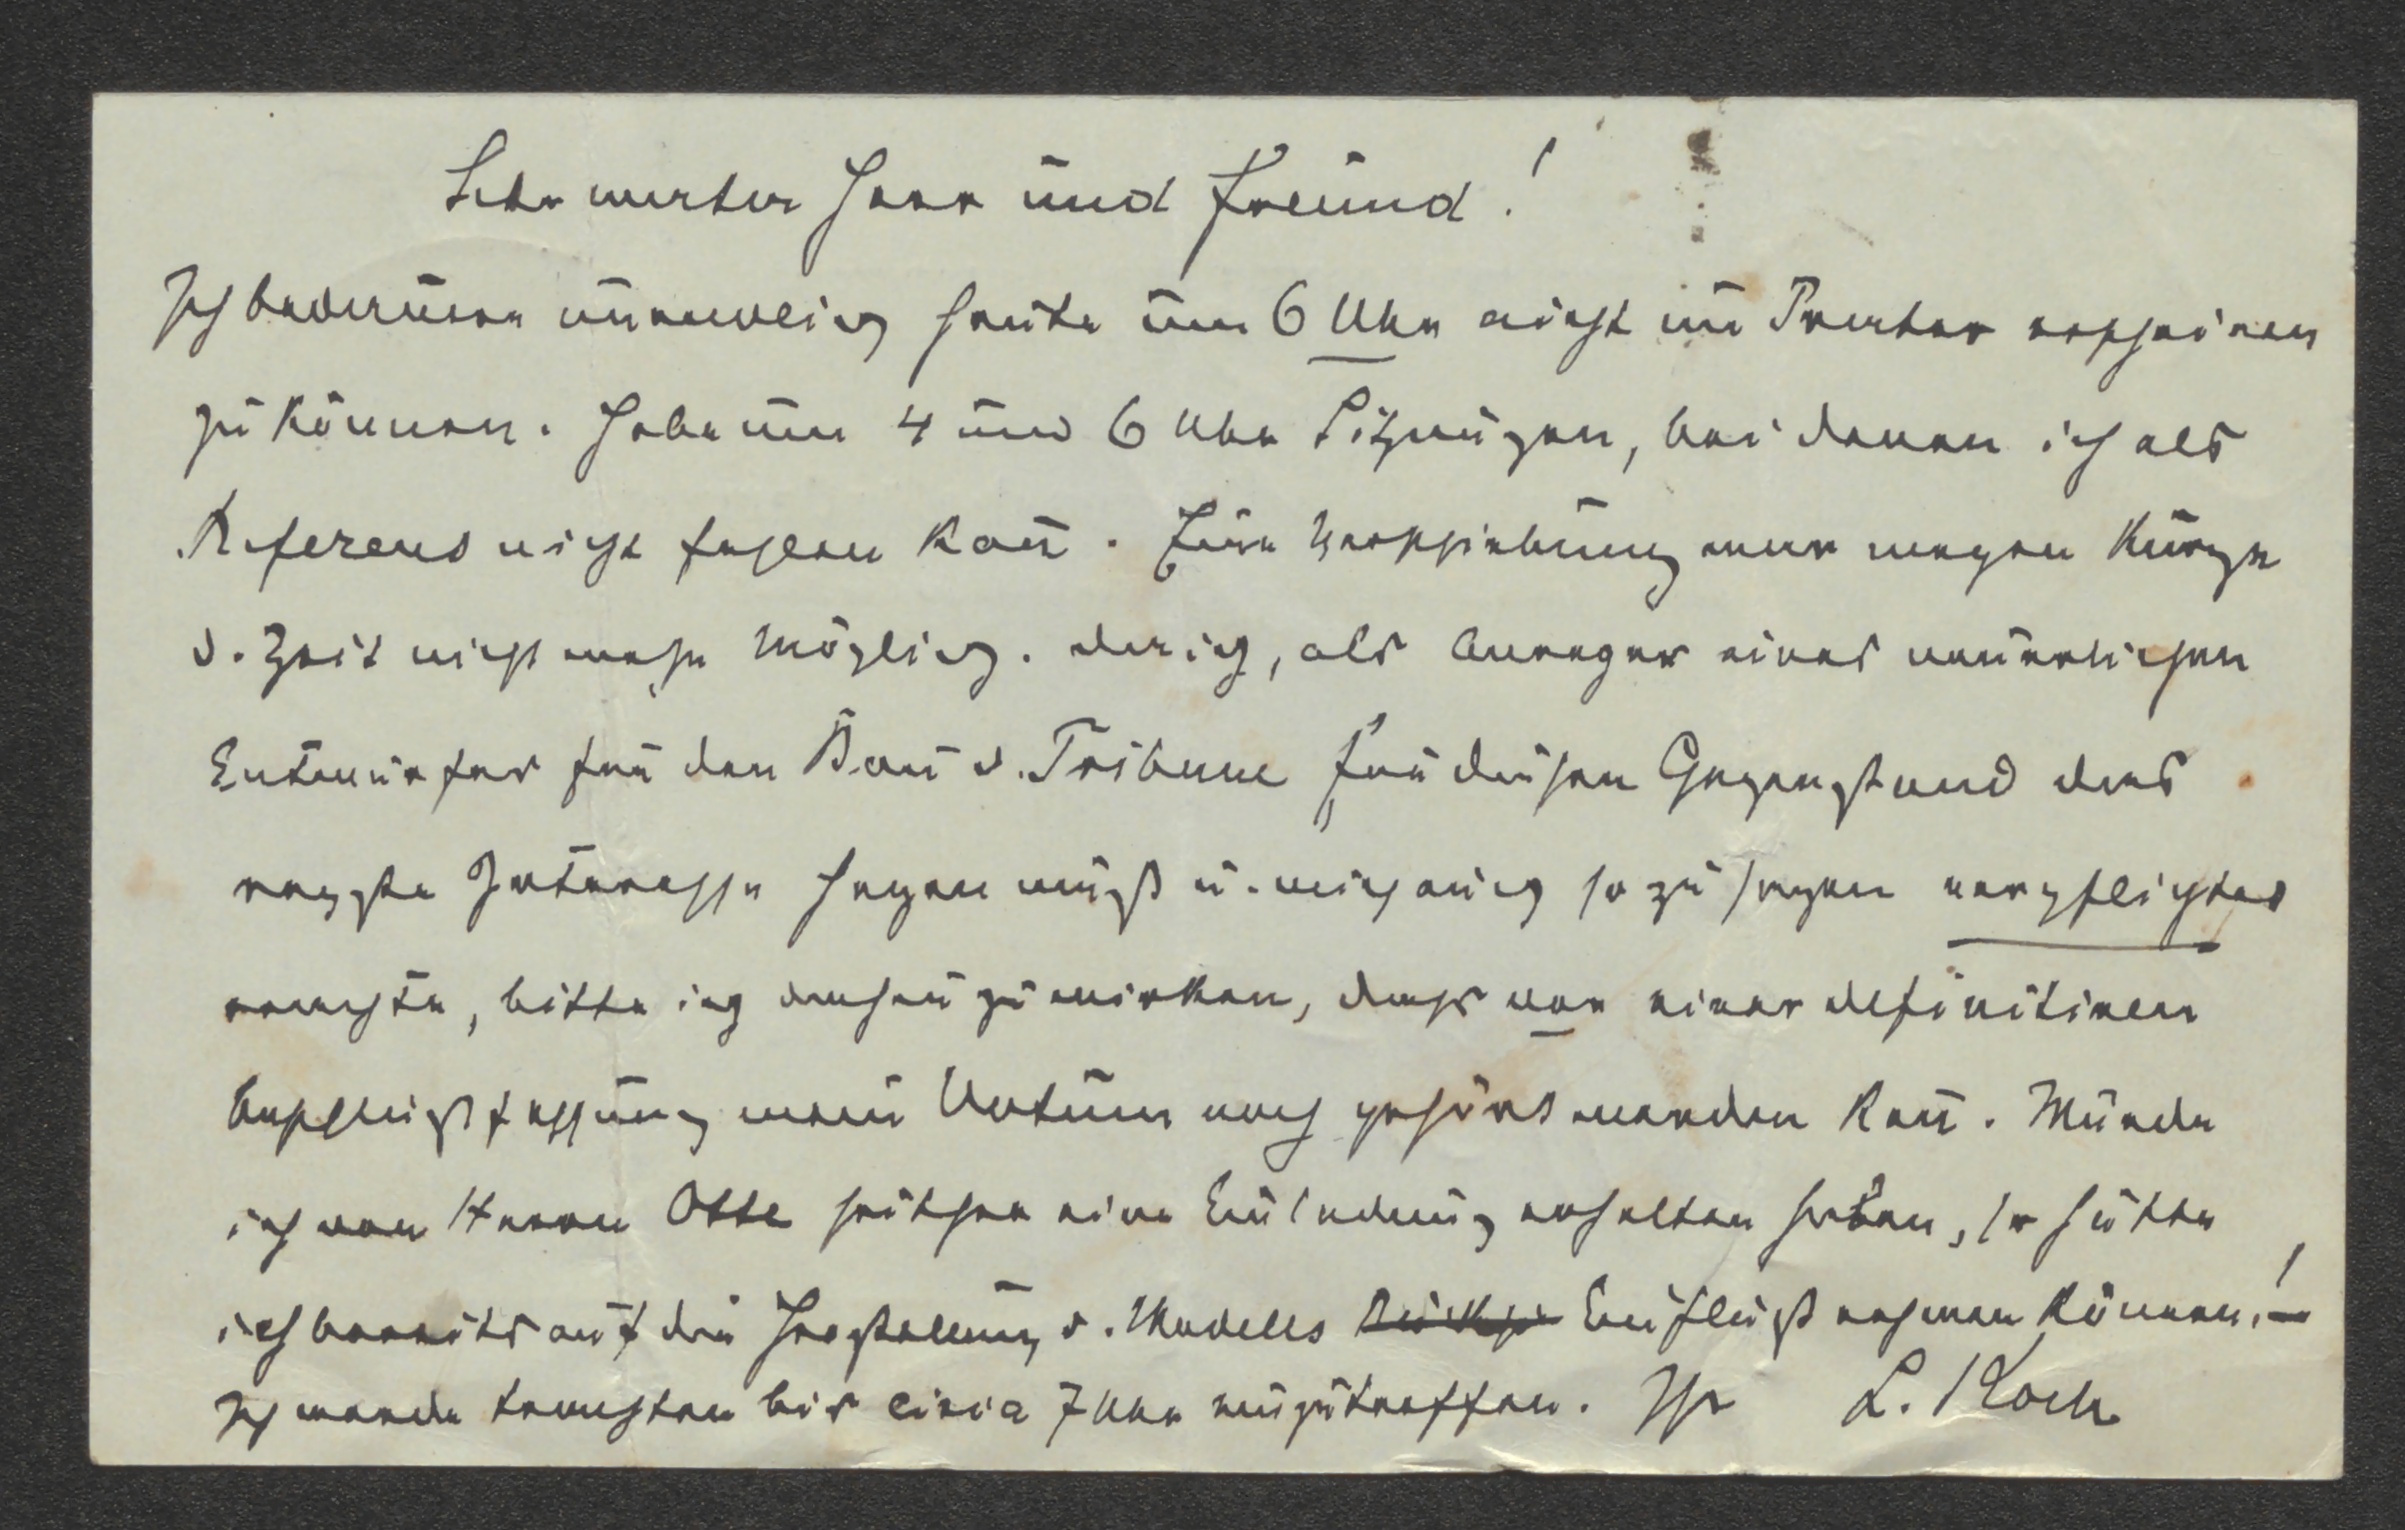 Sehr werter Herr und Freund!
Ich bedauere unendlich heute um 6 Uhr nicht im Prater erscheinen
zu können. Habe um 4 und 6 Uhr Sitzungen, bei denen ich als
Referend nicht fehlen kan̄. Eine Verschiebung war wegen Kürze
d. Zeit nicht mehr möglich. Da ich, als Anreger eines neuerlichen
Entwurfes für den Bau d. Tribune für diesen Gegenstand das
regste Interesse hegen muß u. mich auch so zu sagen verpflichtet
erachte, bitte ich dahin zu wirken, dass vor einer definitiven
Beschlußfassung mein Votum noch gehört werden kan̄. Würde
ich von Herrn Otte seither eine Einladung erhalten haben, so hätte
ich bereits auf die Herstellung d. Modelles Einfluß nehmen können! –
Ich werde trachten bis circa 7 Uhr einzutreffen. Ihr L. Koch